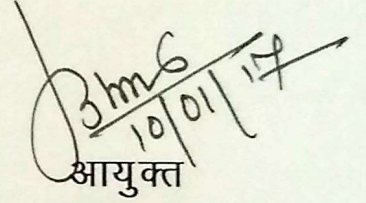 10/01/17
आयुक्त